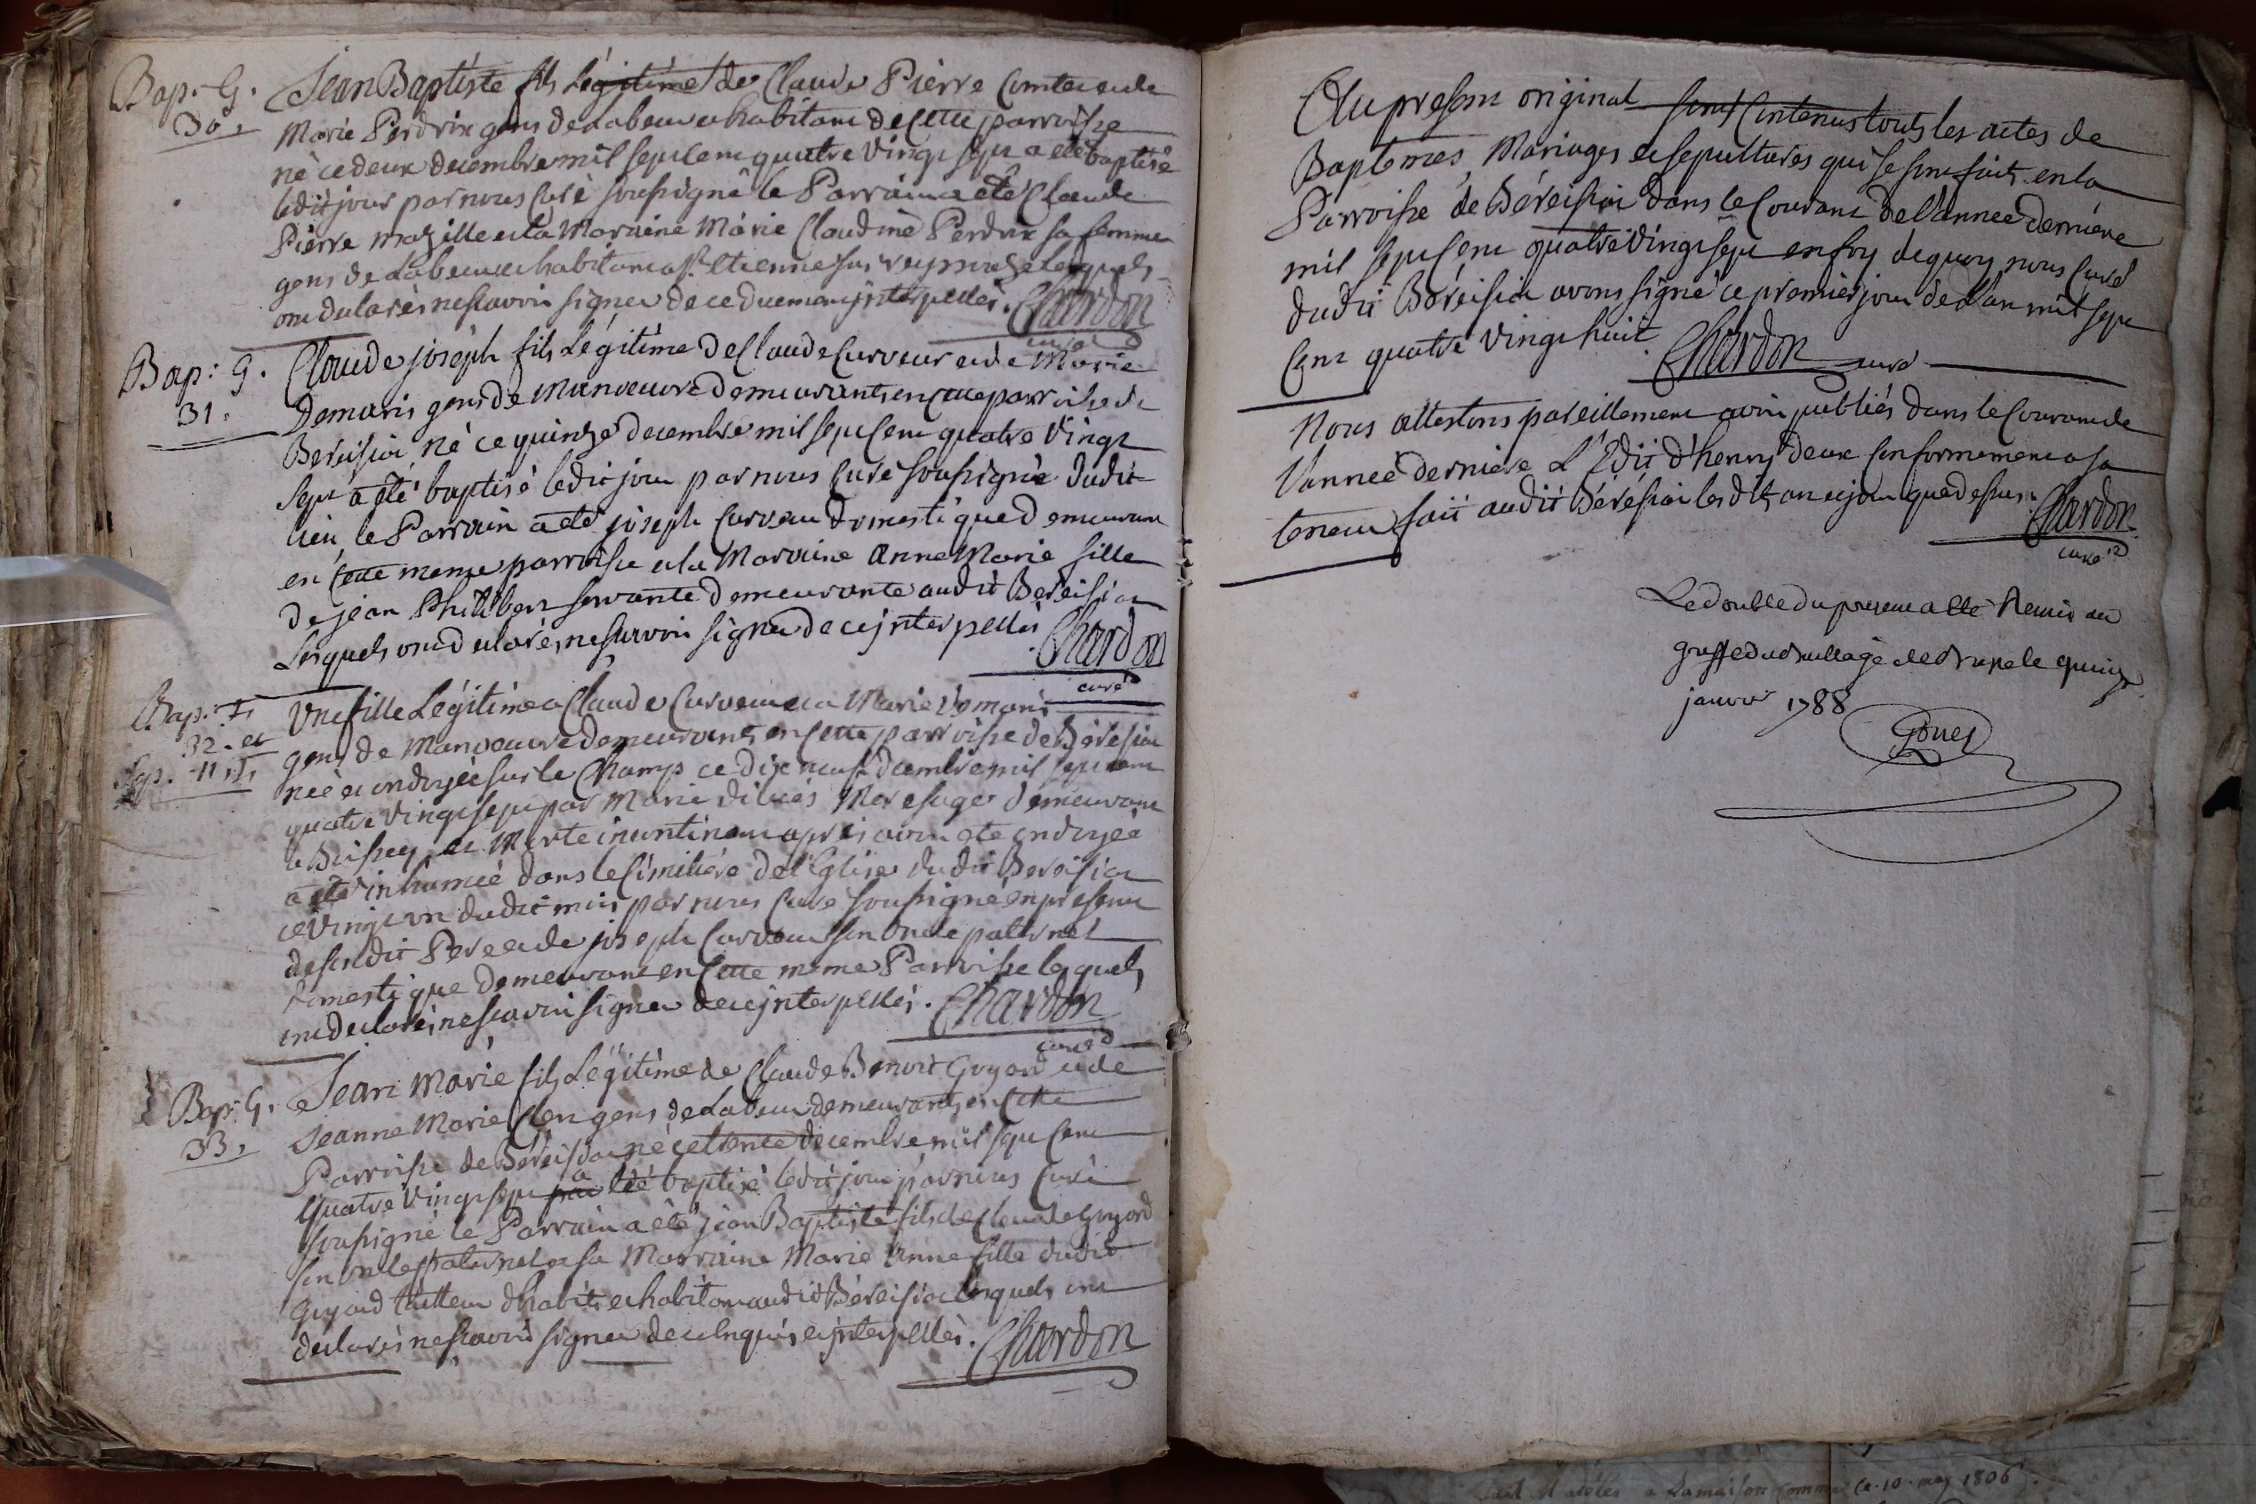 Bap. G.
30.
Jean Baptiste fils Légitime de Claude Pierre Comte et de
Marie Perdrix gens de Labeur et habitant de cette parroisse
né ce deux decembre mil sept cent quatre vingt sept a eté baptisé
ledit jour par nous Curé soussigné le Parrain a eté Claude
Pierre mazille et la Maraine Marie Claudine Perdrix sa femme
gens de Labeur et habitant a St. Etienne sur reyssouze lesquels
ont declarés ne scavoir signer de ce duement interpellés. Chardon
curé
Bap: G.
31.
Claude joseph fils Légitime de Claude Curveur et de Marie
Demaris gens de Manoeuvre demeurants en Cette parroisse de
Bereisiat né ce quinze decembre mil sept Cent quatre vingt
sept a été baptisé ledit jour par nous Curé soussigné dudit
lieu le Parrain a eté joseph Curveur domestique demeurant
en Cette meme parroisse et la Maraine anne Marie fille
de jean Philibert servante demeurante audit Bereisiat
Lesquels ont declarés ne scavoir signer de ce interpellés Chardon
curé
Bap: F.
32. et
Sep. 11. F.
Une fille Légitime a Claude Curveur et a Marie Demaris
gens de Manoeuvre demeurants en Cette parroisse de Béréisiat
née et ondoyée sur le Champ ce dix neuf decembre mil sept cent
quatre vingt sept par Marie Mere sage demeurant
a et Morte incontinent apres avoir ete ondoyée
a eté inhumée dans le Cimitière de l'Eglise dudit Bereisiat
ce vingt un dudit mois par nous Curé soussigné en presence
de sondit Pere et de joseph Curveur son oncle paternel
domestique demeurant en Cette meme Parroisse lesquels
ont declarés ne scavoir signer de ce interpellés. Chardon
curé
Bap: G.
33.
Jean Marie fils Légitime de Claude Benoit Goyard et de
Jeanne Marie gens de Labeur demeurants en Cette
Parroisse de Béréisiat né ce trente decembre mil sept Cent
Quatre vingt sept a été baptisé ledit jour par nous Curé
soussigné le Parrain a eté jean Baptiste fils de Claude Goyard
son oncle paternel et sa Marraine Marie Anne fille dudit
Goyard tailleur d'habits et habitant audit Béréisiat lesquels ont
declarés ne scavoir signer de ce Enquis et interpellés. Chardon
Au present original sont Contenus touts les actes de
Baptemes, Mariages et sepultures qui se sont faits en la
Parroisse de Béréisiat dans le Courant de l'année dernière
mil sept Cent quatre vingt sept en foy de quoy nous Curé
dudit Béréisiat avons signé ce premier jour de l'an mil sept
Cent quatre vingt huit. Chardon curé
Nous attestons pareillement avoir publiés dans le Courant de
l'année dernière L'Edit d'henry deux Conformement a sa
teneur fait audit Béréisiat les dits an et jour que dessus. Chardon
curé
Le double du present a été Remis au
greffe du Bailliage de Bresse le quinze
janvier 1788
a Lamaison Comm Ce 10 may 1806